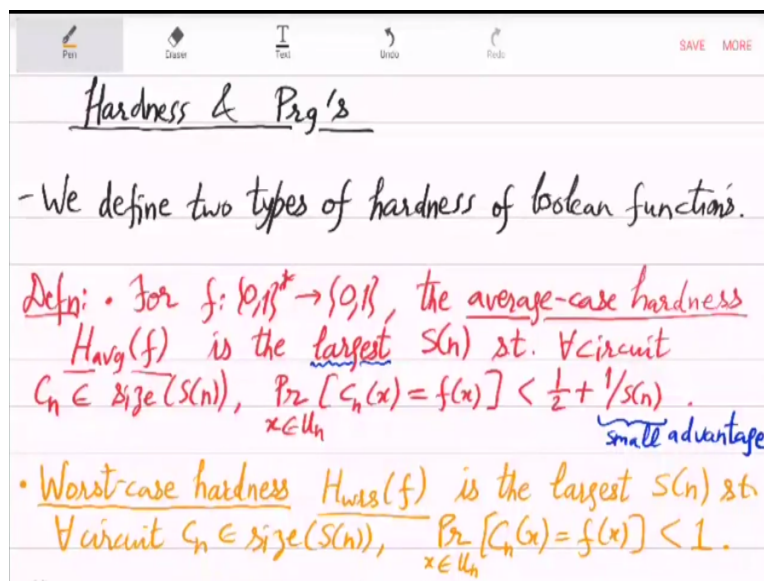 Pen Eraser Text Undo Redo SAVE MORE
Hardness & Prg's
- We define two types of hardness of boolean functions.
Defn: • For f: {0,1}* → {0,1}, the average-case hardness
Havg(f) is the largest S(n) st. ∀circuit
Cn ∈ size(S(n)), Pr [Cn(x) = f(x)] < 1/2 + 1/S(n).
x∈Un
small advantage
• Worst-case hardness Hwrs(f) is the largest S(n) st.
∀circuit Cn ∈ size(S(n)), Pr [Cn(x) = f(x)] < 1.
x∈Un